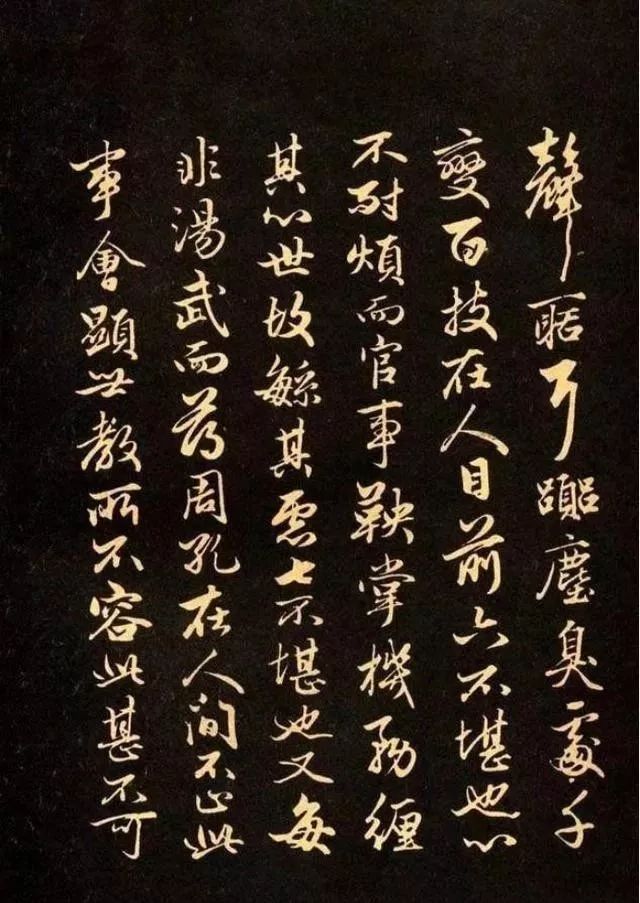 聲聒耳囂塵臭處千
變百技在人目前六不堪也心
不耐煩而官事鞅掌機務纏
其心世故繁其慮七不堪也又每
非湯武而薄周孔在人間不止此
事會顯世教所不容此甚不可